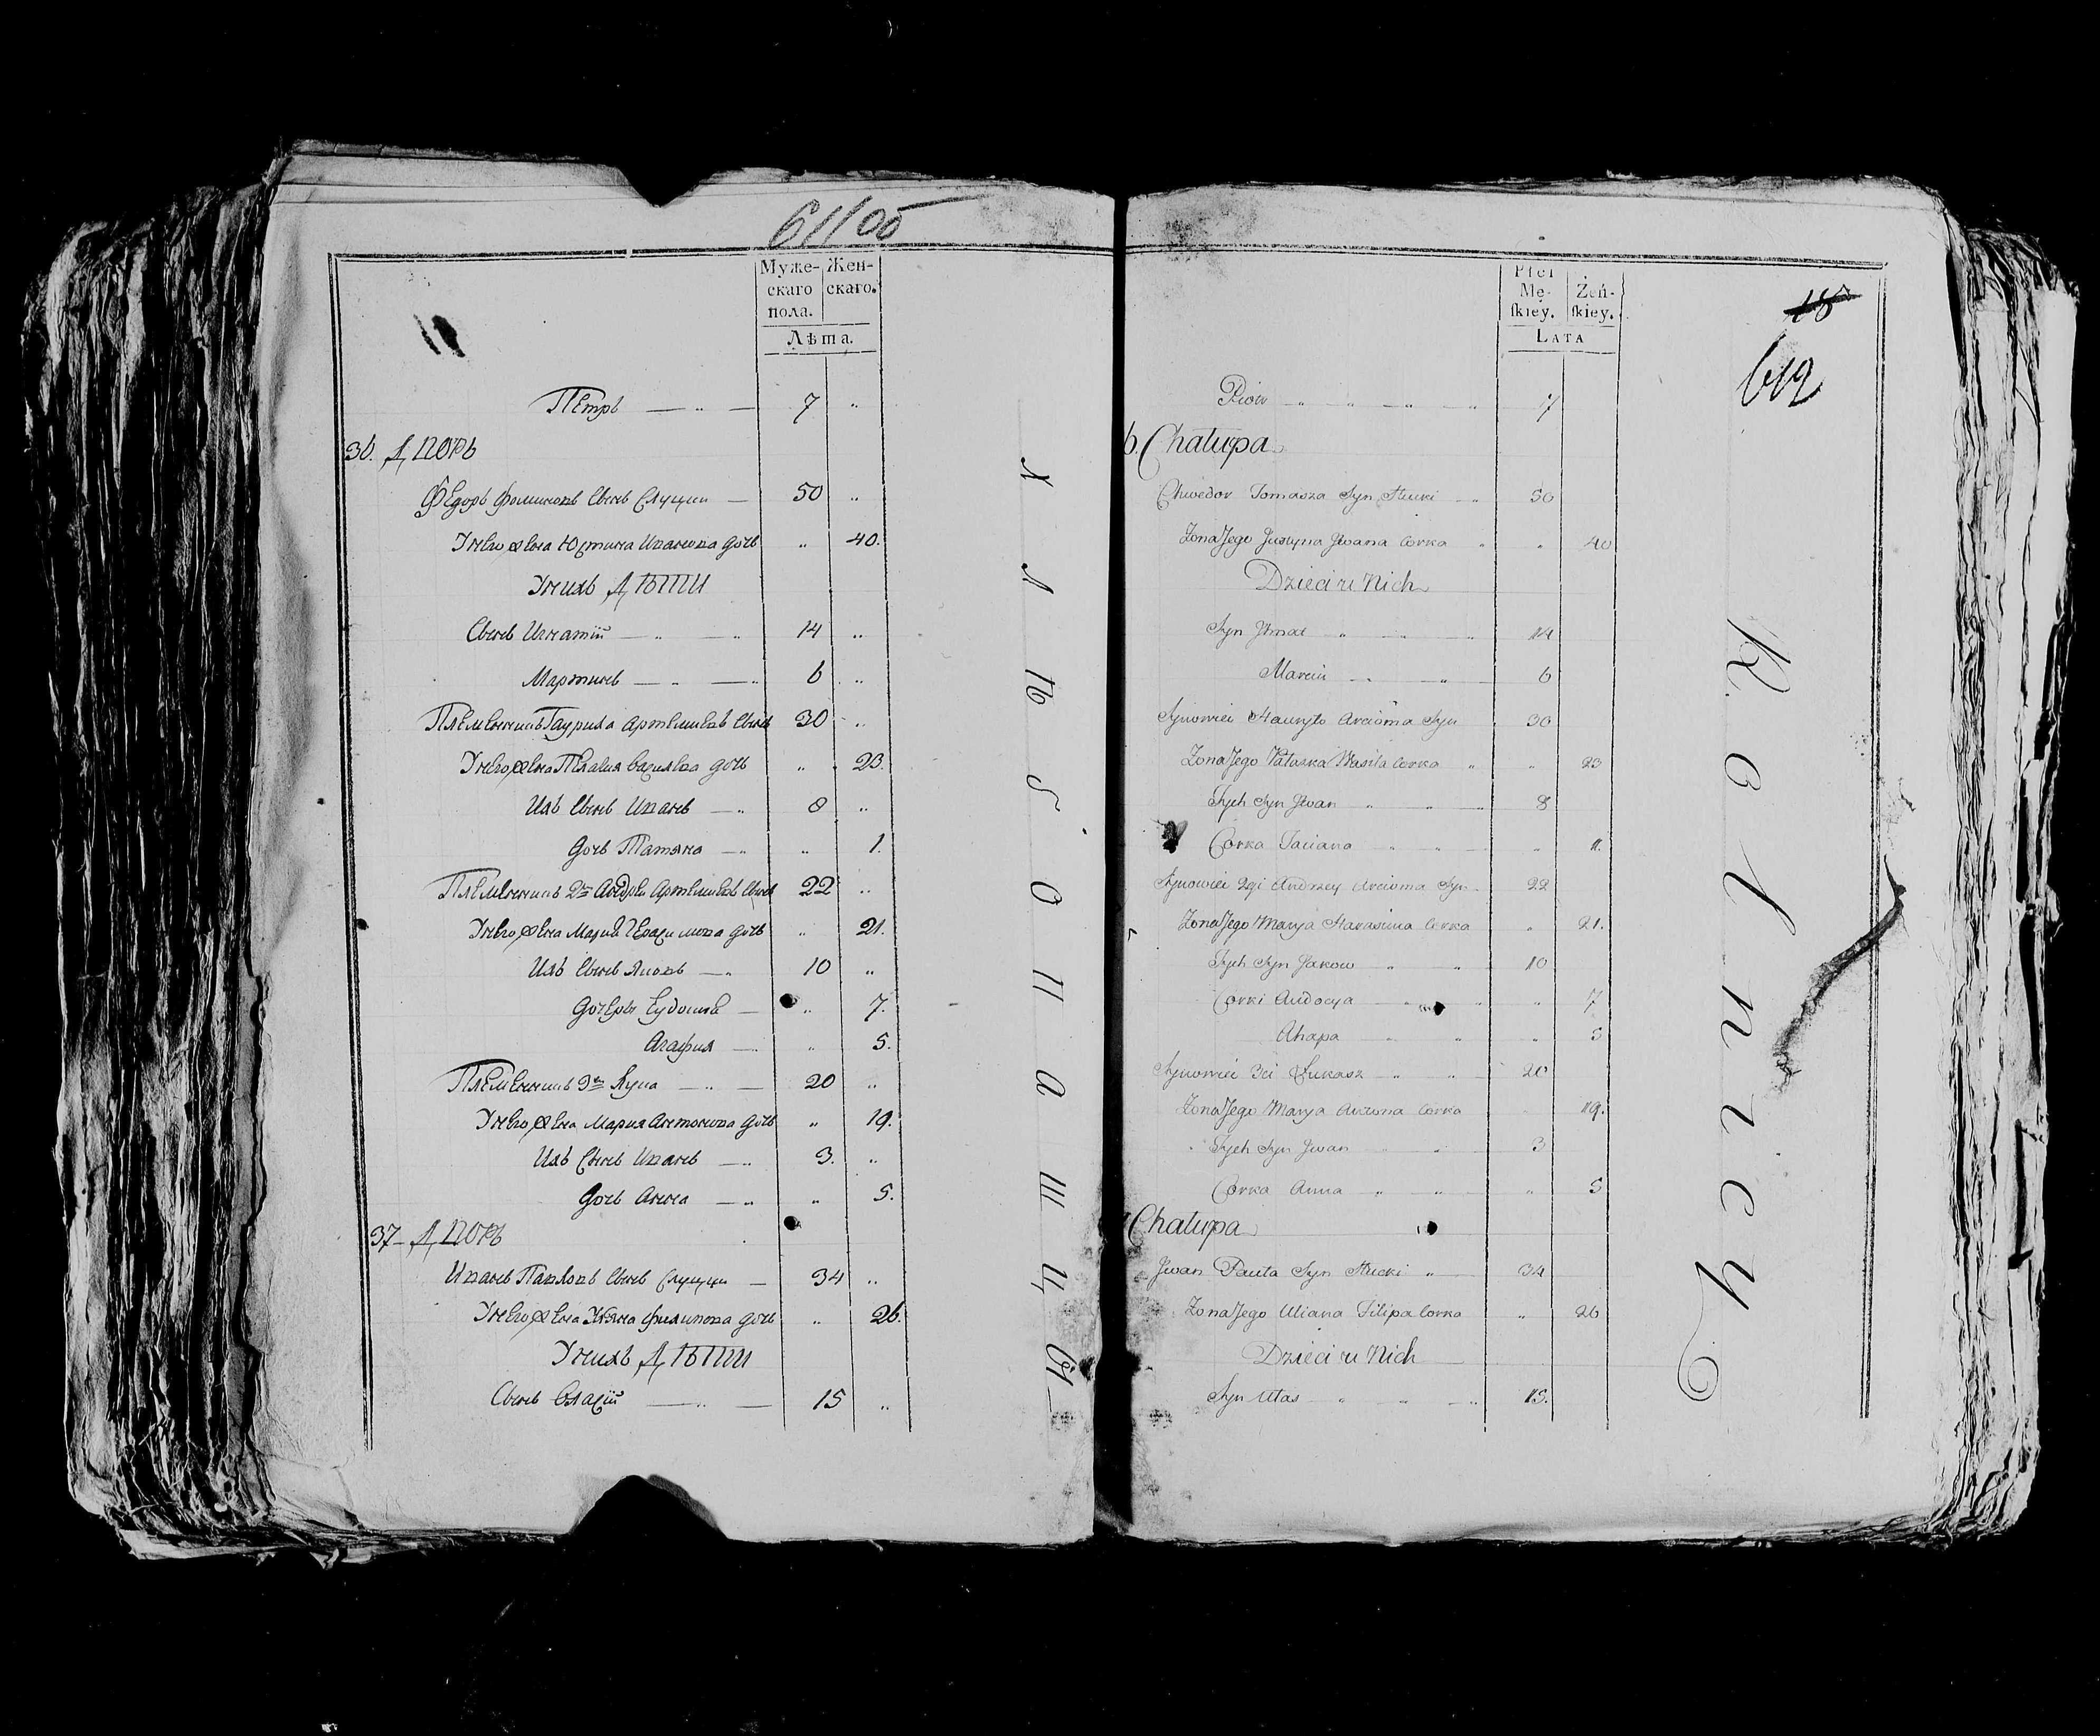 611об
Муже-скаго пола. Жен-скаго.
Лѣта.
Петръ 7 "
36. Дворъ
Федоръ Фоминовъ сынъ Слуцки 50 "
У него жена Юстина Иванова дочь " 40.
У нихъ Дѣти
Сынъ Игнатій 14 "
Мартинъ 6 "
Племянникъ Гаурила Артемиевъ сынъ 30 "
У него жена Пелагия Василева дочь " 23.
Ихъ сынъ Иванъ 8 "
дочь Татяна " 1.
Племянникъ 2й Андрей Артемиевъ сынъ 22 "
У него жена Мария Герасимова дочь " 21.
Ихъ сынъ Яковъ 10 "
дочеры Еудокия " 7.
Агафия " 5.
Племянникъ 3й Лука 20 "
У него жена Мария Антонова дочь " 19.
Ихъ сынъ Иванъ 3. "
дочь Анна " 5.
37 Дворъ
Иванъ Павловъ сынъ Слуцки 34 "
У него жена Уляна Филипова дочь " 26.
У нихъ Дѣти
Сынъ Власій 15 "
Хлѣбопашцы
Płci Mę-ſkiey. Żeń-ſkiey.
Lata
18
612
Piotr 7
6. Chałupa
Chwedor Tomasza Syn Słucki 50
Żona Jego Justyna Jwana Corka " 40
Dzieci u Nich
Syn Jhnat 14
Marcin 6
Synowiec Hauryło Arcioma Syn 30
Żona Jego Pałaska Wasila Corka " 23
Tych Syn Jwan 8
Corka Taciana " 1.
Synowiec 2gi Andrzey Arcioma Syn 22
Żona Jego Marya Harasima Corka " 21.
Tych Syn Jakow 10
Corki Audocya " 7
Ahapa " 5
Synowiec 3ci Łukasz 20
Żona Jego Marya Antona Corka 19.
Tych Syn Jwan 3
Corka Anna " 5
Chałupa
Jwan Pauła Syn Słucki 34
Żona Jego Uliana Filipa Corka " 26
Dzieci u Nich
Syn Ułas 15.
Rolnicy